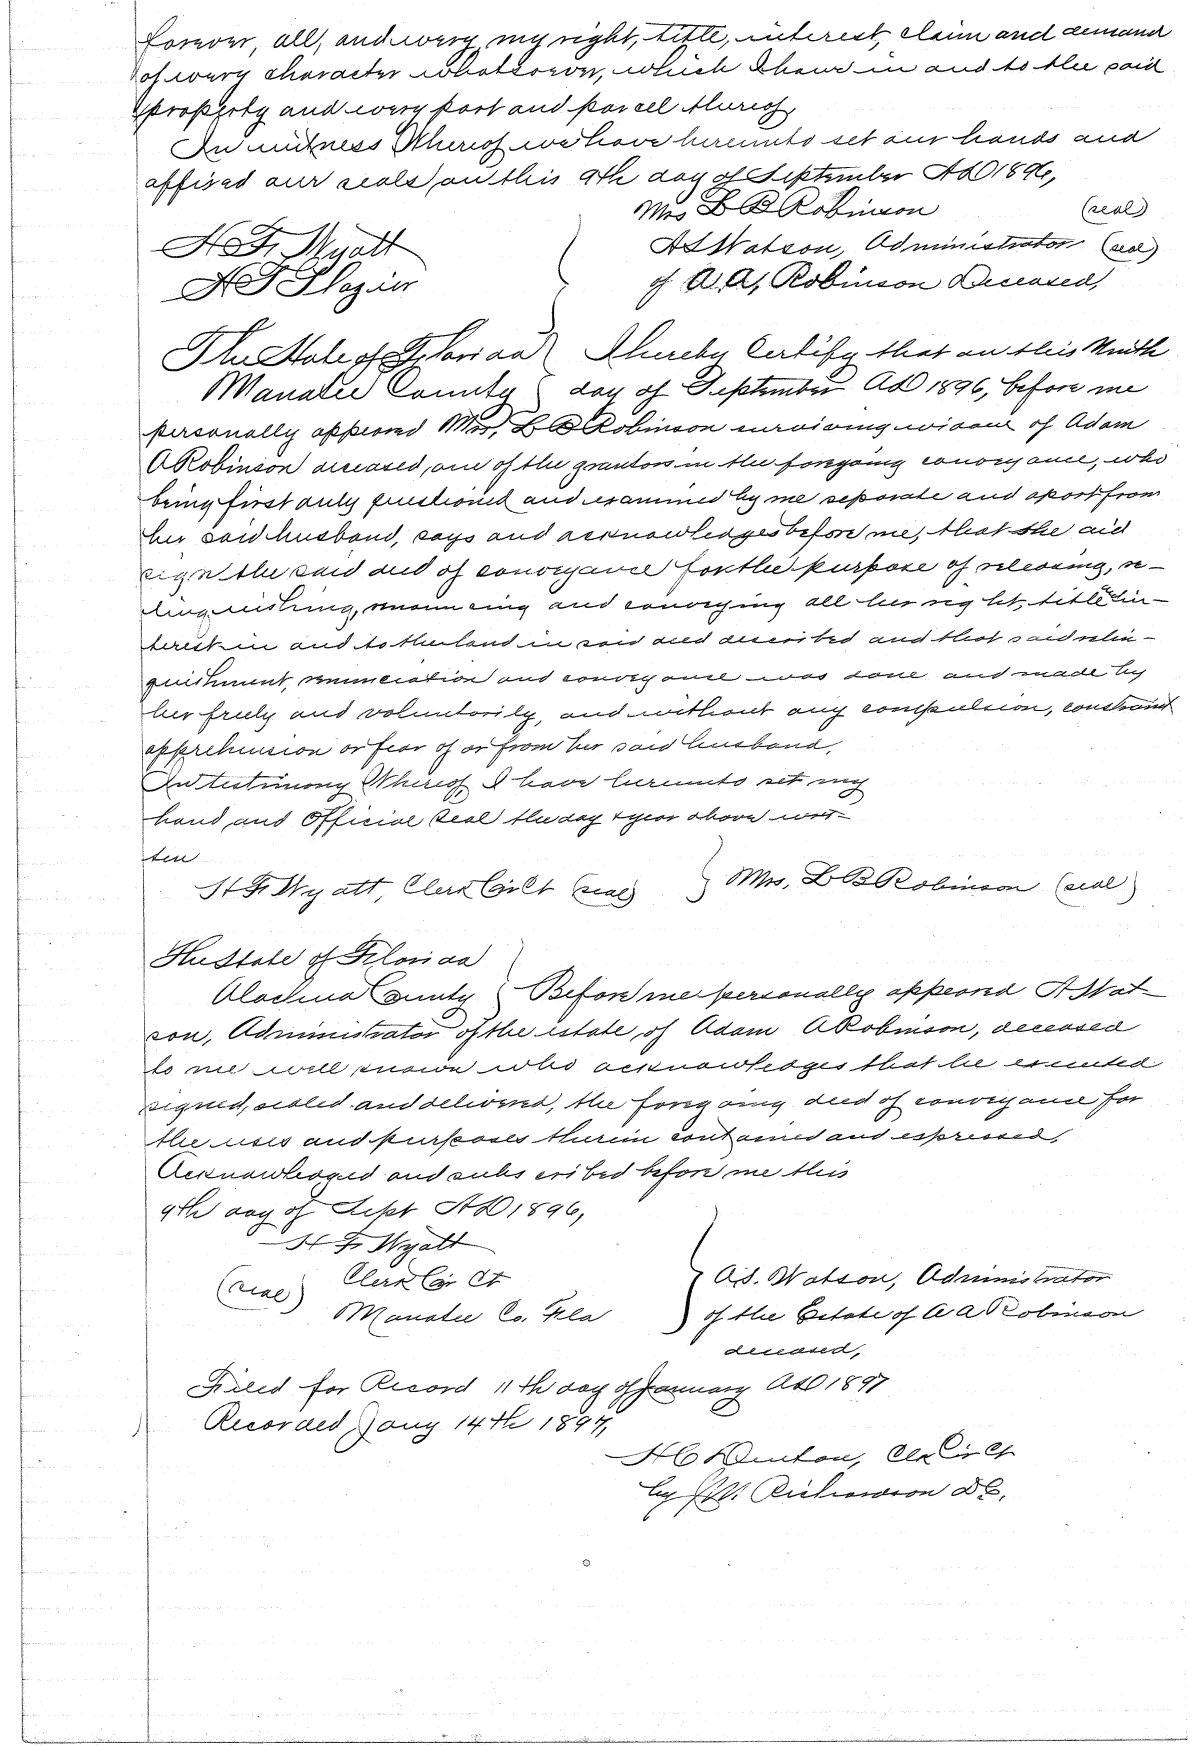 forever, all, and every, my right, title, interest, claim and demand
of every character whatsoever, which I have in and to the said
property and every part and parcel thereof,
In witness Whereof we have hereunto set our hands and
affixed our seals, on this 9th day of September AD 1896,
Mrs L B Robinson (seal)
H. F. Wyatt
A S Watson, Administrator (seal)
of A. A, Robinson Deceased,
The State of Florida I hereby Certify that on this Ninth
Manatee County day of September AD 1896, before me
personally appeared Mrs, L B Robinson surviving widow of Adam
A Robinson deceased, one of the grantors in the foregoing conveyance, who
being first duly questioned and examined by me separate and apart from
her said husband, says and acknowledges before me, that she did
sign the said deed of conveyance for the purpose of releasing, re-
linquishing, renouncing and conveying all her right, title in-
terest in and to the land in said deed described and that said relin-
quishment, renunciation and conveyance was done and made by
her freely and voluntarily, and without any compulsion, constraint
apprehension or fear of or from her said husband,
In testimony Whereof, I have hereunto set my
hand and Official seal the day & year above writ-
ten
H F. Wyatt, Clerk Cir Ct (seal) Mrs, L B Robinson (seal)
The State of Florida
Alachua County Before me personally appeared A S Wat-
son, Administrator of the estate, of Adam A Robinson, deceased
to me well known who acknowledges that he executed
signed, sealed and delivered, the foregoing deed of conveyance for
the uses and purposes therein contained and expressed,
Acknowledged and subscribed before me this
9th day of Sept AD 1896,
H F. Wyatt
(seal) Clerk Cir Ct
Manatee Co. Fla
A.S. Watson, Administrator
of the Estate of A A Robinson
deceased,
Filed for Record 11th day of January AD 1897
Recorded Jany 14th 1897,
H C Denton, Clk Cir Ct
by Richardson D C.